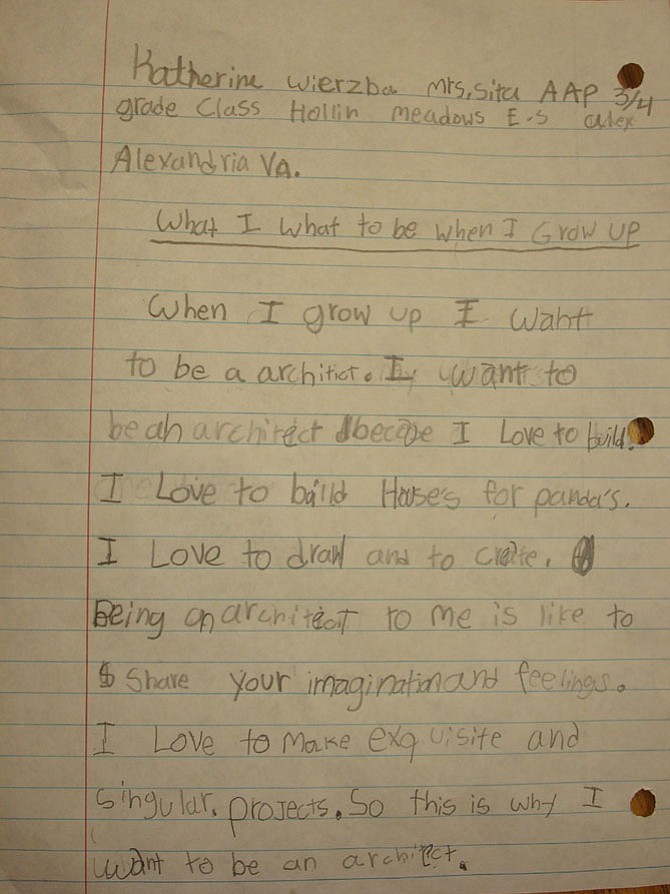 Katherine Wierzba Mrs. Sita AAP 3/4
grade Class Hollin meadows E.S alex
Alexandria VA.
What I What to be when I Grow UP
When I grow up I want
to be a architict. I want to
be an architect because I Love to build.
I Love to baild Houses for panda's.
I Love to draw and to create.
Being an architect to me is like to
$ Share your imagination and feelings.
I Love to make exquisite and
singular. projects. So this is why I
want to be an architect.